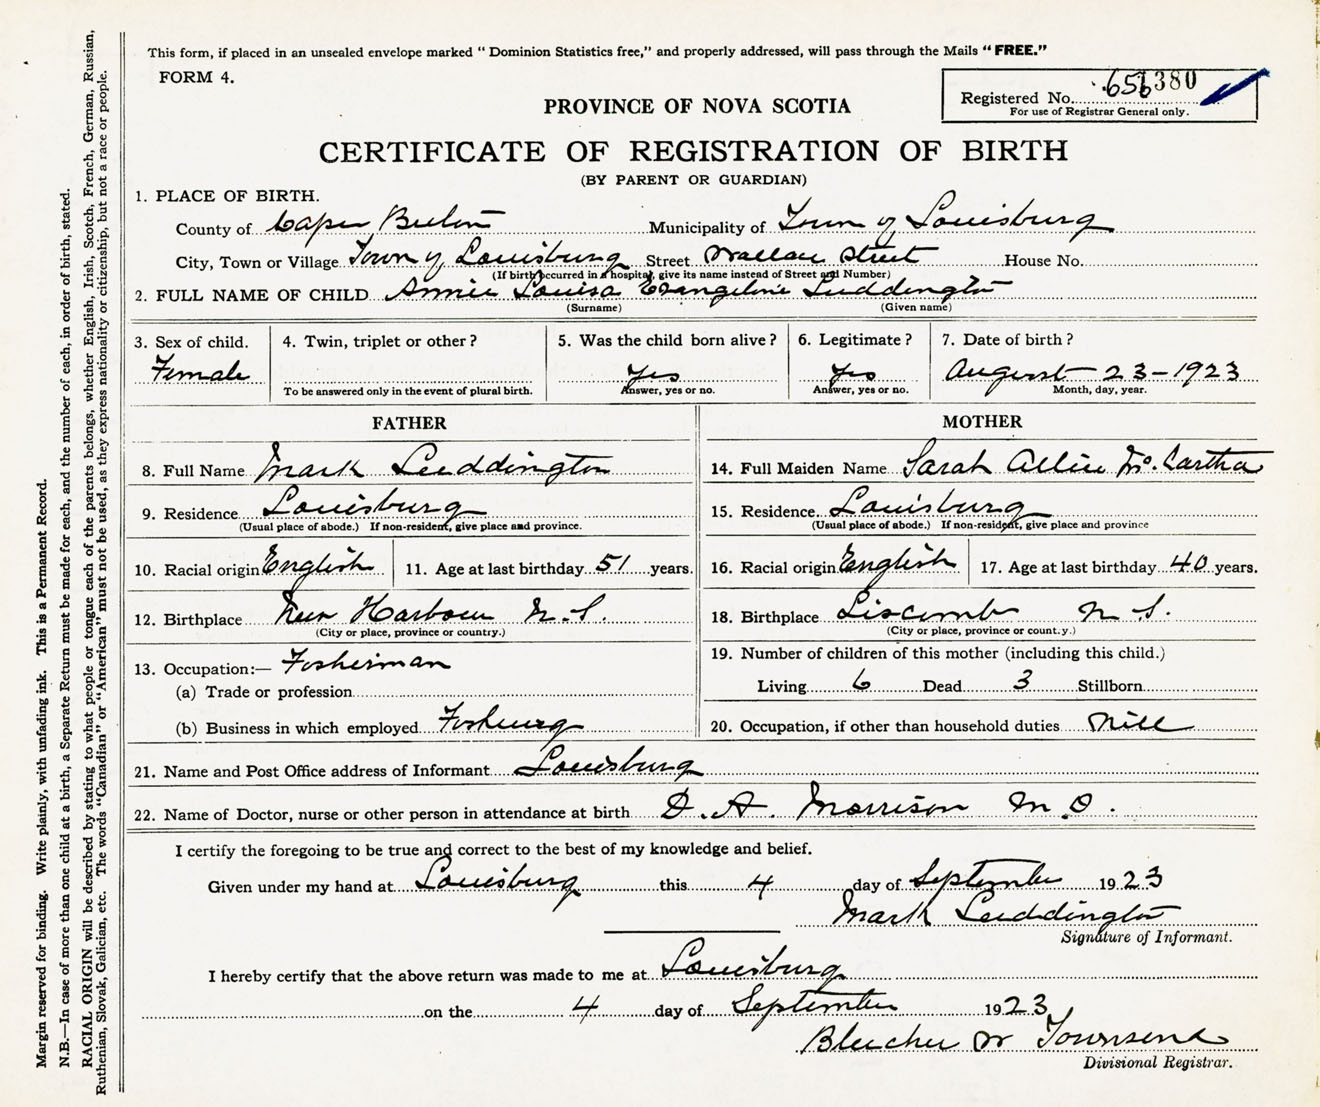 This form, if placed in an unsealed envelope marked “Dominion Statistics free,” and properly addressed, will pass through the Mails “FREE.”
FORM 4.
Registered No. 656380
For use of Registrar General only.
PROVINCE OF NOVA SCOTIA
CERTIFICATE OF REGISTRATION OF BIRTH
(BY PARENT OR GUARDIAN)
1. PLACE OF BIRTH.
County of Cape Breton Municipality of Town of Louisburg
City, Town or Village Town of Louisburg Street Wallace Street House No.
(If birth occurred in a hospital, give its name instead of Street and Number)
2. FULL NAME OF CHILD Annie Louisa Evangeline Luddington
(Surname) (Given name)
3. Sex of child. 4. Twin, triplet or other? 5. Was the child born alive? 6. Legitimate? 7. Date of birth?
Female Yes Yes August - 23 - 1923
To be answered only in the event of plural birth. Answer, yes or no. Answer, yes or no. Month, day, year.
FATHER
8. Full Name Mark Luddington
9. Residence Louisburg
(Usual place of abode.) If non-resident, give place and province.
10. Racial origin English 11. Age at last birthday 51 years.
12. Birthplace New Harbour N.S.
(City or place, province or country.)
13. Occupation:— Fisherman
(a) Trade or profession
(b) Business in which employed Fishing
MOTHER
14. Full Maiden Name Sarah
15. Residence. Louisburg
(Usual place of abode.) If non-resident, give place and province
16. Racial origin English 17. Age at last birthday 40 years.
18. Birthplace Liscomb N S.
(City or place, province or count.y.)
19. Number of children of this mother (including this child.)
Living 6 Dead 3 Stillborn
20. Occupation, if other than household duties Nill
21. Name and Post Office address of Informant Louisburg
22. Name of Doctor, nurse or other person in attendance at birth D. A. Morrison M.D.
I certify the foregoing to be true and correct to the best of my knowledge and belief.
Given under my hand at Louisburg this 4 day of September 1923
Mark Luddington
Signature of Informant.
I hereby certify that the above return was made to me at Louisburg
on the 4 day of September 1923
W Townsend
Divisional Registrar.
Margin reserved for binding. Write plainly, with unfading ink. This is a Permanent Record.
N.B.—In case of more than one child at a birth, a Separate Return must be made for each, and the number of each, in order of birth, stated.
RACIAL ORIGIN will be described by stating to what people or tongue each of the parents belongs, whether English, Irish, Scotch, French, German, Russian,
Ruthenian, Slovak, Galician, etc. The words “Canadian” or “American” must not be used, as they express nationality or citizenship, but not a race or people.